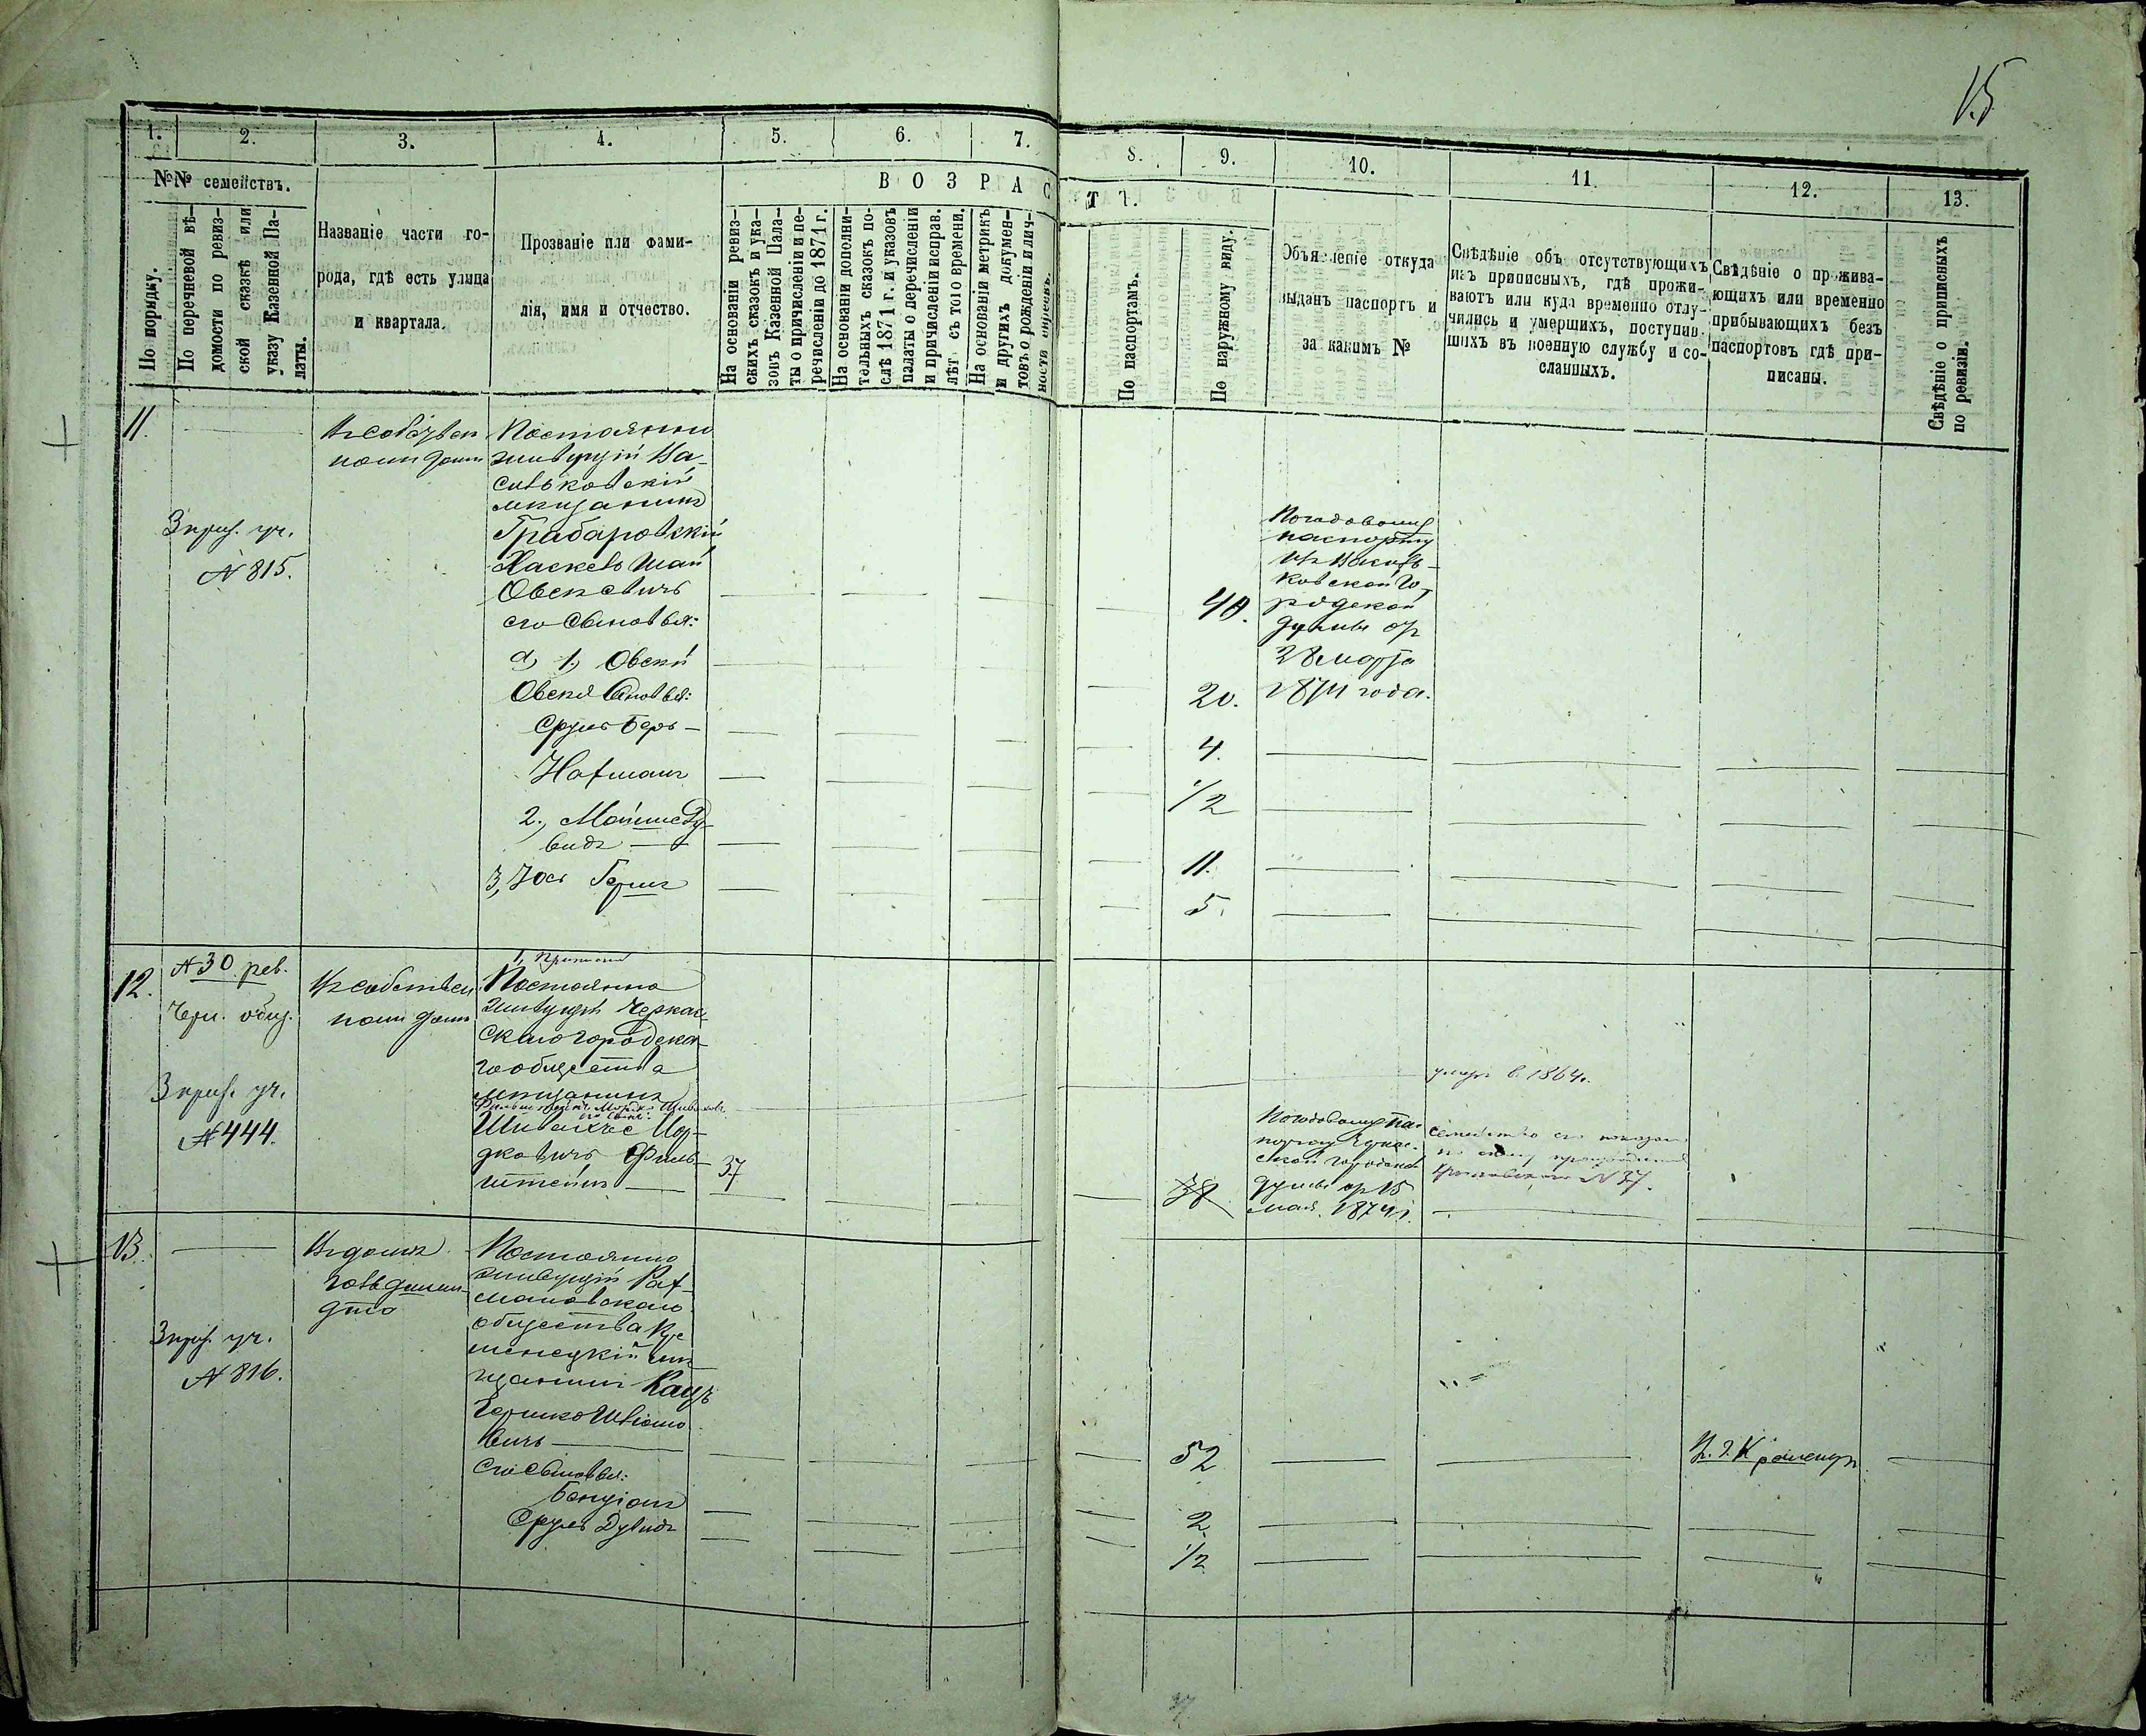 15
1.
2.
3.
4.
5.
6.
7.
8.
9.
10.
11.
12.
13.
№№ семействъ.
По порядку.
По перечневой вѣ-
домости по ревиз-
ской сказкѣ или
указу Казенной Па-
латы.
Названіе части го-
рода, гдѣ есть улица
и квартала.
Прозваніе или фами-
лія, имя и отчество.
ВОЗРАС
ТЪ.
На основаніи ревиз-
скихъ сказокъ и ука-
зовъ Казенной Пала-
ты о причисленіи и пе-
речисленіи до 1871 г.
На основаніи дополни-
тельныхъ сказокъ по-
слѣ 1871 г. и указовъ
палаты о перечисленіи
и причисленіи исправ.
лѣт съ того времени.
На основаніи метрикъ
и другихъ докумен-
товъ о рожденіи и лич-
ности евреевъ.
По паспортамъ.
По наружному виду.
Объясненіе откуда
выданъ паспортъ и
за какимъ №
Свѣдѣніе объ отсутствующихъ
изъ приписныхъ, гдѣ прожи-
ваютъ или куда временно отлу-
чились и умершихъ, поступив.
шихъ въ военную службу и со-
сланныхъ.
Свѣдѣніе о прожива-
ющихъ или временно
прибывающихъ безъ
паспортовъ гдѣ при-
писаны.
Свѣдѣніе о приписныхъ
по ревизіи.
11.
3 приз. уч.
№ 815.
Въ собствен
номъ домѣ
Постоянно
живущій Ва-
сильковскій
мѣщанинъ
Грабаровскій
Хаскель Шай
Овсеевичъ
его сыновья:
а, 1, Овсей
Овсея сыновья:
Сруль Беръ —
Нафтманъ
2., Мойше Ду-
видъ —
3, Іось Гершъ
40.
20.
4.
1/2
11.
5.
Погодовому
паспорту
изъ Василь-
ковской Го-
родской
Думы отъ
28 марта
1874 года.
12.
№ 30 рев.
Черк. общ.
3 приз. уч.
№ 444.
Въ собствен
номъ домѣ
Постоянно
живущій Черкас-
скаго городска-
го общества
мѣщанинъ
его сынъ:
Иор-
дковичъ Филь-
штейнъ —
37
38
Погодовому пас-
порту Черкас-
ской городской
думы отъ 15
мая 1874 г.
умеръ в 1864 г.
семейство его показано
№ 37.
13.
3 приз. уч.
№ 816.
Въ домѣ
Постоянно
живущій
общества Кре
менецкій мѣ
щанинъ Кацъ
Гершко
вичъ —
его сыновья:
Бенціонъ
Сруль Дувидъ
52
2.
1/2